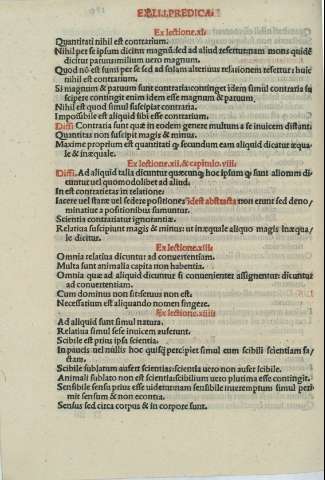 EX LI.I. PREDICA:
Ex lectione.xi.
Quantitati nihil est contrarium.
Nihil per se ipsum dicitur magnũ: sed ad aliud refertur: nam mons quidẽ
dicitur paruus: milium vero magnum.
Quod nõ est sumi per se sed ad solam alterius relationem refertur: huic
nihil est contrarium.
Si magnum & paruum sunt contraria: continget idem simul contraria su
scipere continget enim idem esse magnum & paruum.
Nihil est quod simul suscipiat contraria.
Impossibile est aliquid sibi esse contrarium.
Diffi. Contraria sunt quæ in eodem genere multum a se inuicem distant.
Quantitas non suscipit magis & minus.
Maxime proprium est quantitati ꝙ secundum eam aliquid dicatur æqua-
le & inæquale.
Ex lectione.xii. & capitulo.viii:
Diffi. Ad aliquid talia dicuntur quæcunꝗ hoc ipsum ꝙ sunt aliorum di
cuntur uel quomodolibet ad aliud.
In est contrarietas in relatione:
Iacere uel stare uel sedere positiones id est abstracta non erunt sed deno/
minatiue a positionibus sumuntur.
Scientia contrariatur ignorantiæ.
Relatiua suscipiunt magis & minus: ut inæquale aliquo magis inæqua/
le dicitur.
Ex lectione.xiii:
Omnia relatiua dicuntur ad conuertentiam.
Multa sunt animalia capita non habentia.
Omnia quæ ad aliquid dicuntur si conuenienter assignentur: dicuntur
ad conuertentiam.
Cum dominus non sit: seruus non est:
Necessarium est aliquando nomen fingere.
Ex lectione.xiiii
Ad aliquid sunt simul natura.
Relatiua simul sese inuicem auferunt.
Scibile est prius ipsa scientia.
In paucis uel nullis hoc quisꝗ percipiet simul cum scibili scientiam fa/
ctam.
Scibile sublatum aufert scientia: scientia vero non aufert scibile.
Animali sublato non est scientia: scibilium uero plurima esse contingit.
Sensibile sensu prius esse uidetur: nam sensibile interemptum simul peri
mit sensum & non econtra.
Sensus sed circa corpus & in corpore sunt.